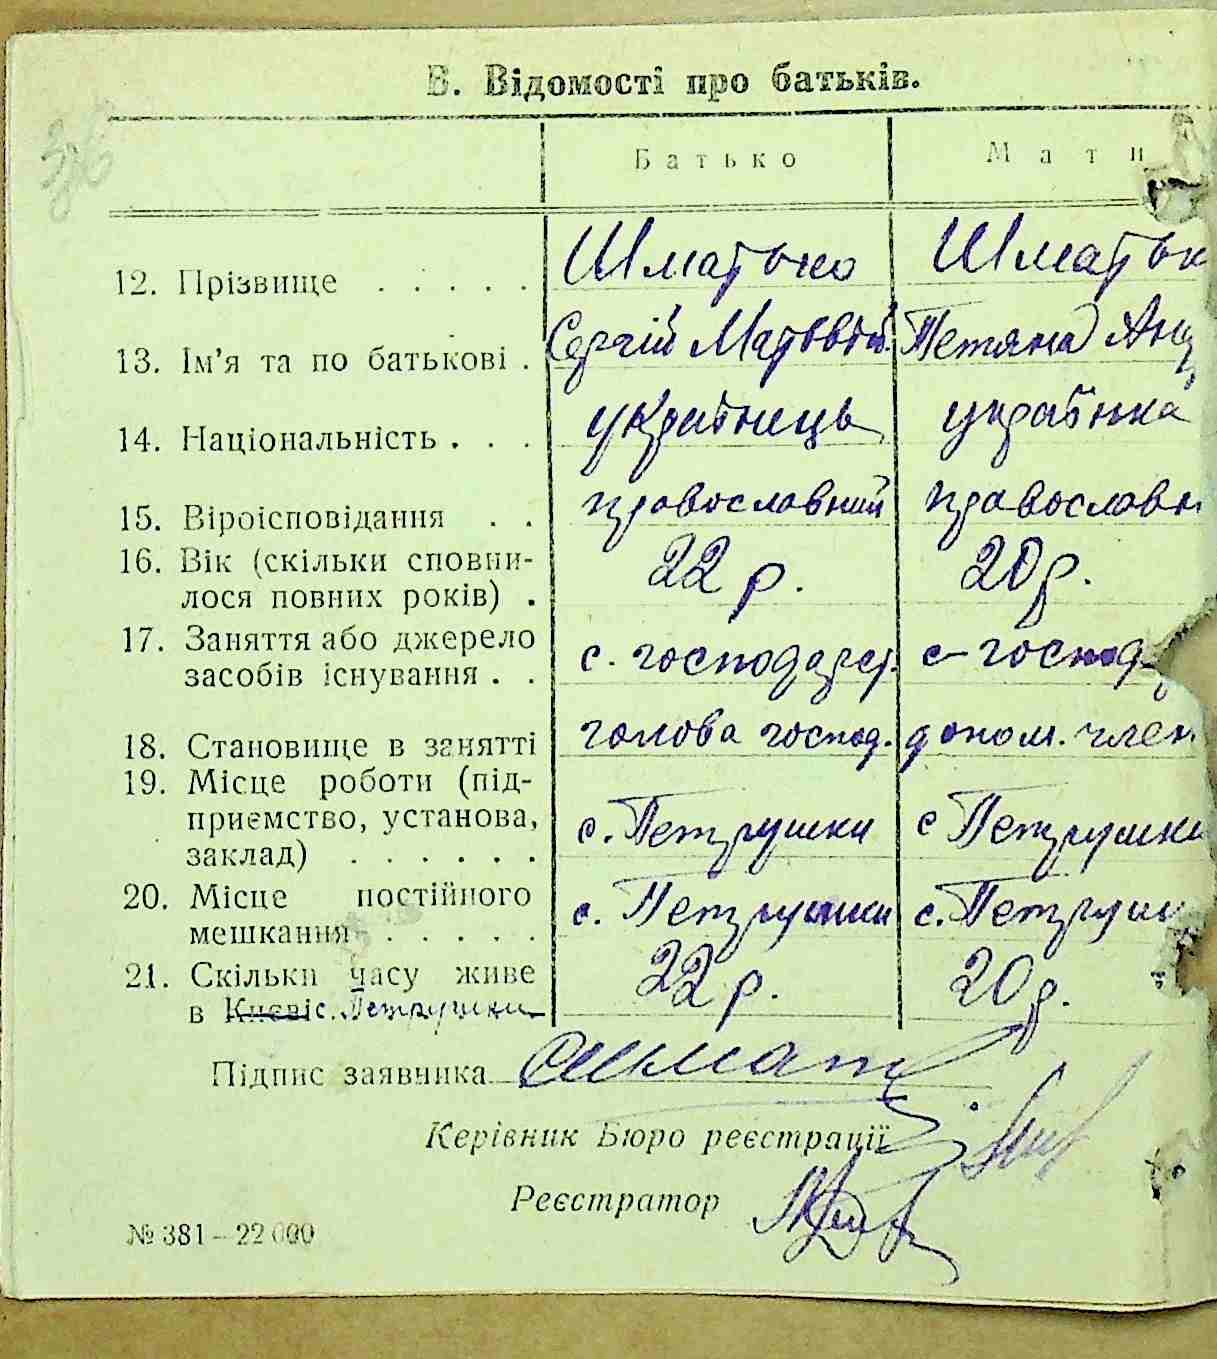 В. Відомості про батьків.
Батько Мати
12. Прізвище . . . . . Шматько Шматьк
13. Ім'я та по батькові . Сергій Матввій. Тетяна Анд
14. Національність . . . українець українка
15. Віроісповідання . . православний православн
16. Вік (скільки сповни-
лося повних років) . 22 р. 20 р.
17. Заняття або джерело
засобів існування . . с. господарст. с-господ
18. Становище в занятті голова господ. допом. член
19. Місце роботи (під-
приємство, установа,
заклад) . . . . . . с. Петрушки с Петрушки
20. Місце постійного
мешкання . . . . . с. Петрушки с. Петруш
21. Скільки часу живе
в Києві с. Петрушки 22 р. 20 р.
Підпис заявника Шмат
Керівник Бюро реєстрації
Реєстратор
№ 381 – 22 000